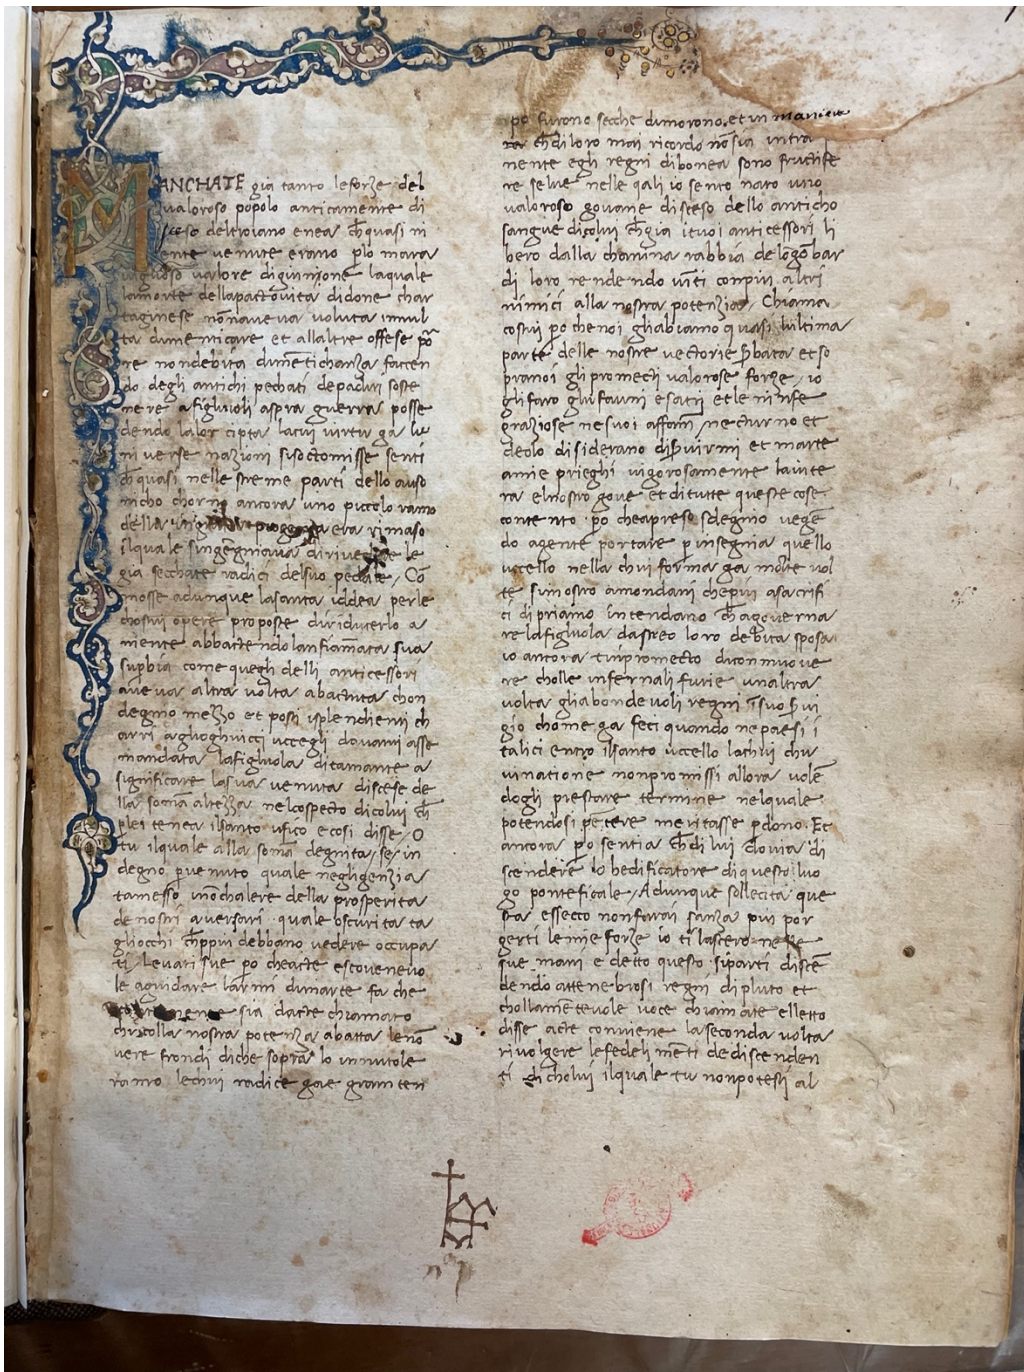 MANCHATE gia tanto leforze del
valoroso popolo anticamente di
sceso deltroiano enea ch̄ quasi ni
ente venute erano p̱lo mara
viglioso valore digiunone laquale
lamorte dellapactovita didone char
taginese nōnaveva voluta innul
ta dimenticare et allaltre offese pō
re nondebita dimētichanza faccen
do degli antichi pechati depadri soste
nere afigluoli aspra guerra posse
dendo lalor cipta lacui virtu ga lu
ni verse nazioni sisoctomisse senti
ch̄ quasi nelle streme parti dello auso
nicho chorno ancora uno piccolo ramo
della progenia era rimaso
ilquale singēgniava di le
gia secchate radici delsuo pedale / Cō
mosse adunque lasanta iddea perle
chostui opere propose diriducerlo a
niente abbactendo lanfiāmata sua
sup̱bia come quegli delli anticessori
aveva altra volta abactuta chon
degnio mezzo et posti isplendienti ch
arri agluoghi uccegli davanti asse
mandata lafigluola ditamante a
significare lasua venuta discese de
lla somā altezza nelcospecto dicolui ch̄
p̱lei tenea ilsanto uficio ecosi disse / O
tu ilquale alla somā degnita / se / in
degno p̱venuto quale negligenzia
tamesso inōchalere della prosperita
de nostri aversari quale oscurita ta
gliocchi ch̄ppiu debbano vedere occupa
ti / Levati sue p̱o cheacte escovenevo
le aguidare larmi dimarte fa che
sia dacte chiamato
chicolla nostra potenza abatta lenō
vere frondi diche sopra lo innutole
ramo lechui radice gae gran ten
po furono secche dimorono et in maniera
ra ch̄ diloro mai ricordo nōsia intra
nente egli regni dibonea sono fructife
re selve nelle qali io sento nato uno
valoroso govane disceso dello anticho
sangue dicolui ch̄ gia ituoi anticessori li
bero dalla chanina rabbia delōgobar
di loro rendendo vīti conpiu altri
nimici alla nostra potenzia / Chiama
costui p̱o chenoi ghabiamo quasi lultima
parte delle nostre vectorie s̱bata et so
pranoi gli promecti valorose forze / io
glifaro glifauni esatiri et le ninfe
graziose nesuoi affanni / necturno et
deolo disiderano dis̱virmi et marte
amie prieghi vigorosamente lavite
ra elnostro gove et ditutte queste cose
contento p̱o cheaprese sdegnio vegē
do agente portare p̱ insegnia quello
uccello nella chui forma ga molte vol
te simostro amondani chepiu asacrifi
ci dipriamo intendano ch̄ agoverna
re lafigluola dastreo loro debita sposa
io ancora tinpromecto dicommuove
re cholle infernali furie unaltra
volta gliabondevoli regni īsuo s̱vi
gio chome ga feci quando nepaesi i
talici entro ilsanto uccello lachui chu
vinatione nonpromissi allora volē
dogli prestare termine nelquale
potendosi pētere meritasse p̱dono. Et
ancora p̱o sentia ch̄ di lui dovia di
scendere lo hedificatore diquesto luo
go ponteficale / Adunque sollecita que
sta essecco nonfarai sanza piu por
gerti lemie forze io ti lascero nelle
sue mani e detto questo siparti discē
dendo attenebrosi regni dipluto et
chollamētevole voce chiamate elletto
disse acte conviene laseconda volta
rivolgere lefedeli mēti dediscenden
ti di cholui ilquale tu nonpotesti al